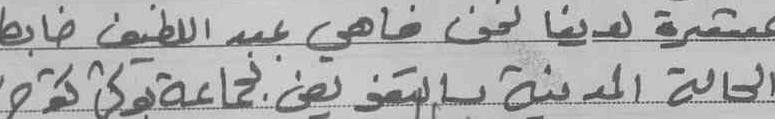 معتبرة لدينا نحن فاهي عبد اللطيف ضابط
الحالة المدنية بالتفويض بجماعة بوكر